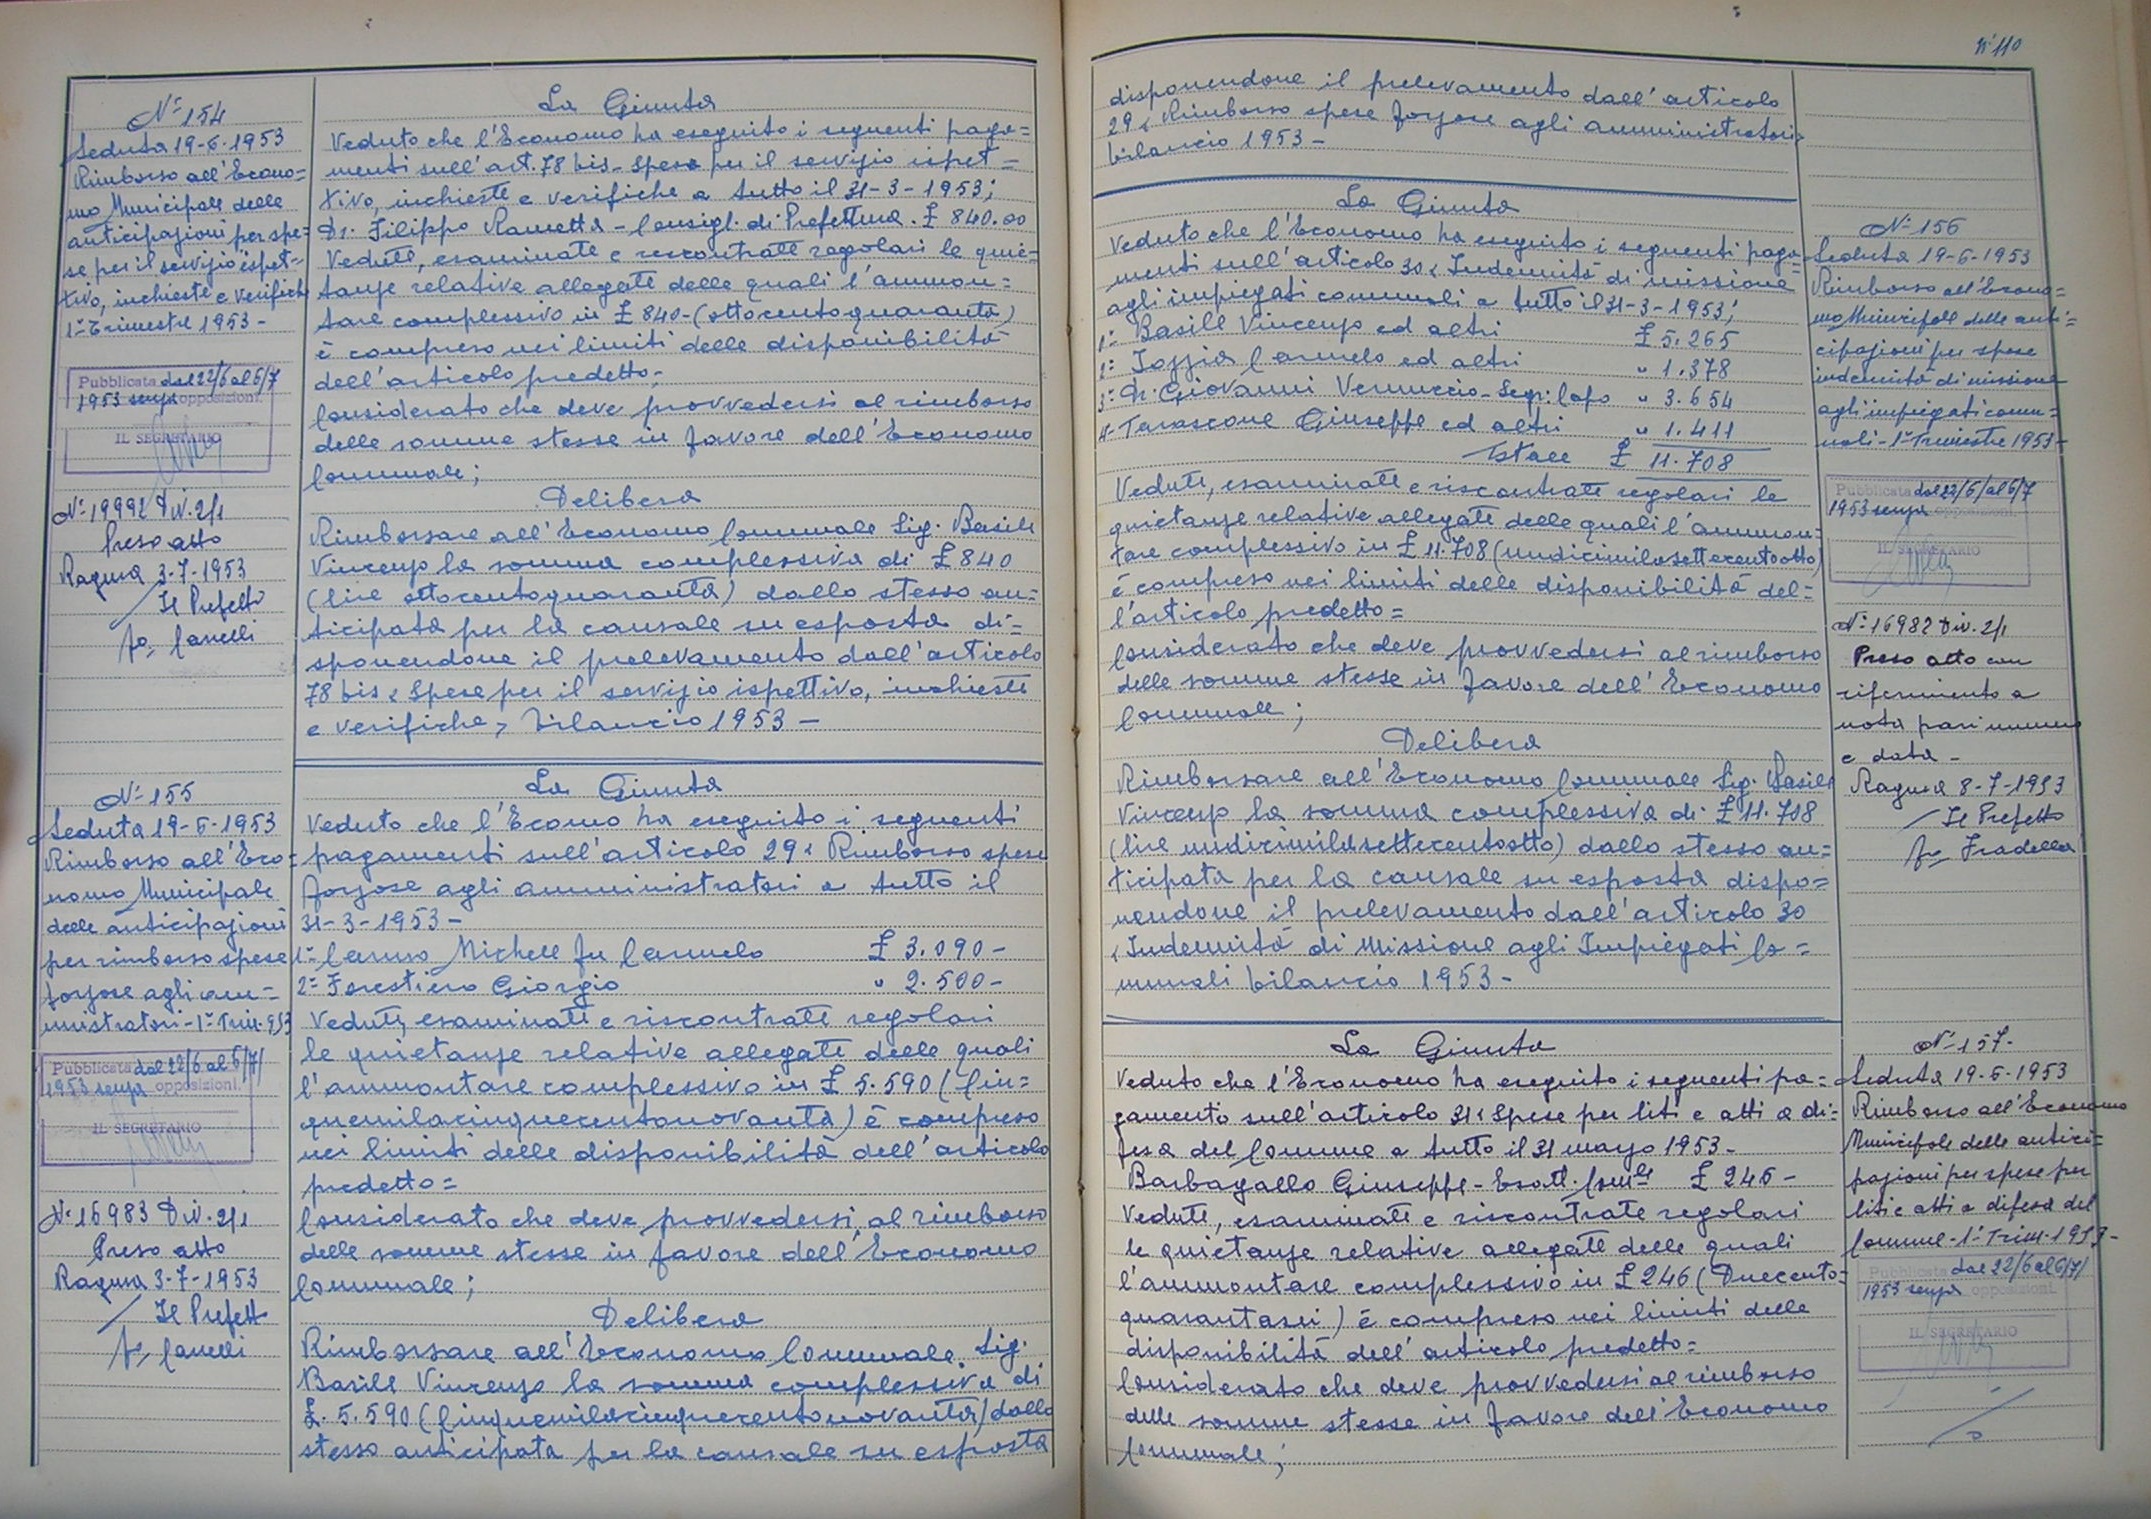 N° 154
Seduta 19-6-1953
Rimborso all'Econo=
mo Municipale delle
anticipazioni per spe=
se per il servizio ispet=
tivo, inchieste e verifiche
1° Trimestre 1953-
Pubblicata dal 22/6 al 6/7
1953 senza opposizioni.
IL SEGRETARIO
N° 19992 Div. 2/1
Preso atto
Ragusa 3-7-1953
Il Prefetto
La Giunta
Veduto che l'Economo ha eseguito i seguenti paga=
menti sull'art. 78 bis - Spese per il servizio ispet=
tivo, inchieste e verifiche a tutto il 31-3-1953;
Dr. Filippo Rametta - Consigl. di Prefettura. £ 840.00
Vedute, esaminate e rescontrate regolari le quie=
tanze relative allegate delle quali l'ammon=
tare complessivo in £ 840- (ottocentoquaranta)
è compreso nei limiti delle disponibilità
dell'articolo predetto;
Considerato che deve provvedersi al rimborso
delle somme stesse in favore dell'Economo
Comunale;
Delibera
Rimborsare all'Economo Comunale Sig. Basile
Vincenzo la somma complessiva di £ 840
(lire ottocentoquaranta) dallo stesso an=
ticipata per la causale su esposta di=
sponendone il prelevamento dall'articolo
78 bis "Spese per il servizio ispettivo, inchieste
e verifiche, bilancio 1953-
N° 155
Seduta 19-6-1953
Rimborso all'Eco=
nomo Municipale
delle anticipazioni
per rimborso spese
forzose agli am=
ministratori - 1° Trim. 953
Pubblicata dal 22/6 al 6/7/
1953 senza opposizioni.
IL SEGRETARIO
N° 16983 Div. 2/1
Preso atto
Ragusa 3-7-1953
Il Prefetto
La Giunta
Veduto che l'Ecomo ha eseguito i seguenti
pagamenti sull'articolo 29 "Rimborso spese
forzose agli amministratori a tutto il
31-3-1953-
1° Caruso Michele fu Carmelo £ 3.090-
2° Forestiero Giorgio " 2.500-
Vedute, esaminate e riscontrate regolari
le quietanze relative allegate delle quali
l'ammontare complessivo in £ 5.590 (Cin=
quemilacinquecentonovanta) è compreso
nei limiti delle disponibilità dell'articolo
predetto=
Considerato che deve provvedersi al rimborso
delle somme stesse in favore dell'Economo
Comunale;
Delibera
Rimborsare all'Economo Comunale. Sig.
Basile Vincenzo la somma complessiva di
£. 5.590 (Cinquemilacinquecentonovanta) dallo
stesso anticipata per la causale su esposta
N° 110
disponendone il prelevamento dall'articolo
29 "Rimborso spese forzose agli amministratori"
bilancio 1953-
La Giunta
Veduto che l'Economo ha eseguito i seguenti paga=
menti sull'articolo 30 "Indennità di missione
agli impiegati comunali a tutto il 31-3-1953;
1° Basile Vincenzo ed altri £ 5.265
2° Iozzia Carmelo ed altri " 1.378
3° Dr. Giovanni Vernuccio - Segr. Capo " 3.654
4- Tarascone Giuseppe ed altri " 1.411
Totale £ 11.708
Vedute, esaminate e riscontrate regolari le
quietanze relative allegate delle quali l'ammon=
tare complessivo in £ 11.708 (undicimilasettecentootto)
è compreso nei limiti delle disponibilità del=
l'articolo predetto=
Considerato che deve provvedersi al rimborso
delle somme stesse in favore dell'Economo
Comunale;
Delibera
Rimborsare all'Economo Comunale Sig. Basile
Vincenzo la somma complessiva di £ 11.708
(lire undicimilasettecentootto) dallo stesso an=
ticipata per la causale su esposta dispo=
nendone il prelevamento dall'articolo 30
"Indennità di Missione agli Impiegati Co=
munali bilancio 1953-
N° 156
Seduta 19-6-1953
Rimborso all'Econo=
mo Municipale delle anti=
cipazioni per spese
indennità di missione
agli impiegati comu=
nali - 1° Trimestre 1953-
Pubblicata dal 22/6/al 6/7
1953 senza opposizioni
IL SEGRETARIO
N° 16982 Div. 2/1
Preso atto con
riferimento a
nota pari numero
e data-
Ragusa 8-7-1953
Il Prefetto
La Giunta
Veduto che l'Economo ha eseguito i seguenti pa=
gamento sull'articolo 31 "Spese per liti e atti a di=
fesa del Comune a tutto il 31 marzo 1953-
Barbagallo Giuseppe - Esatt. Comle £ 246-
Vedute, esaminate e riscontrate regolari
le quietanze relative allegate delle quali
l'ammontare complessivo in £ 246 (Duecento=
quarantasei) è compreso nei limiti delle
disponibilità dell'articolo predetto=
Considerato che deve provvedersi al rimborso
delle somme stesse in favore dell'Economo
Comunale;
N° 157.
Seduta 19-6-1953
Rimborso all'Economo
Municipale delle antici=
pazioni per spese per
liti e atti a difesa del
Comune - 1° Trim. 1953-
Pubblicata dal 22/6 al 6/7/
1953 senza opposizioni.
IL SEGRETARIO